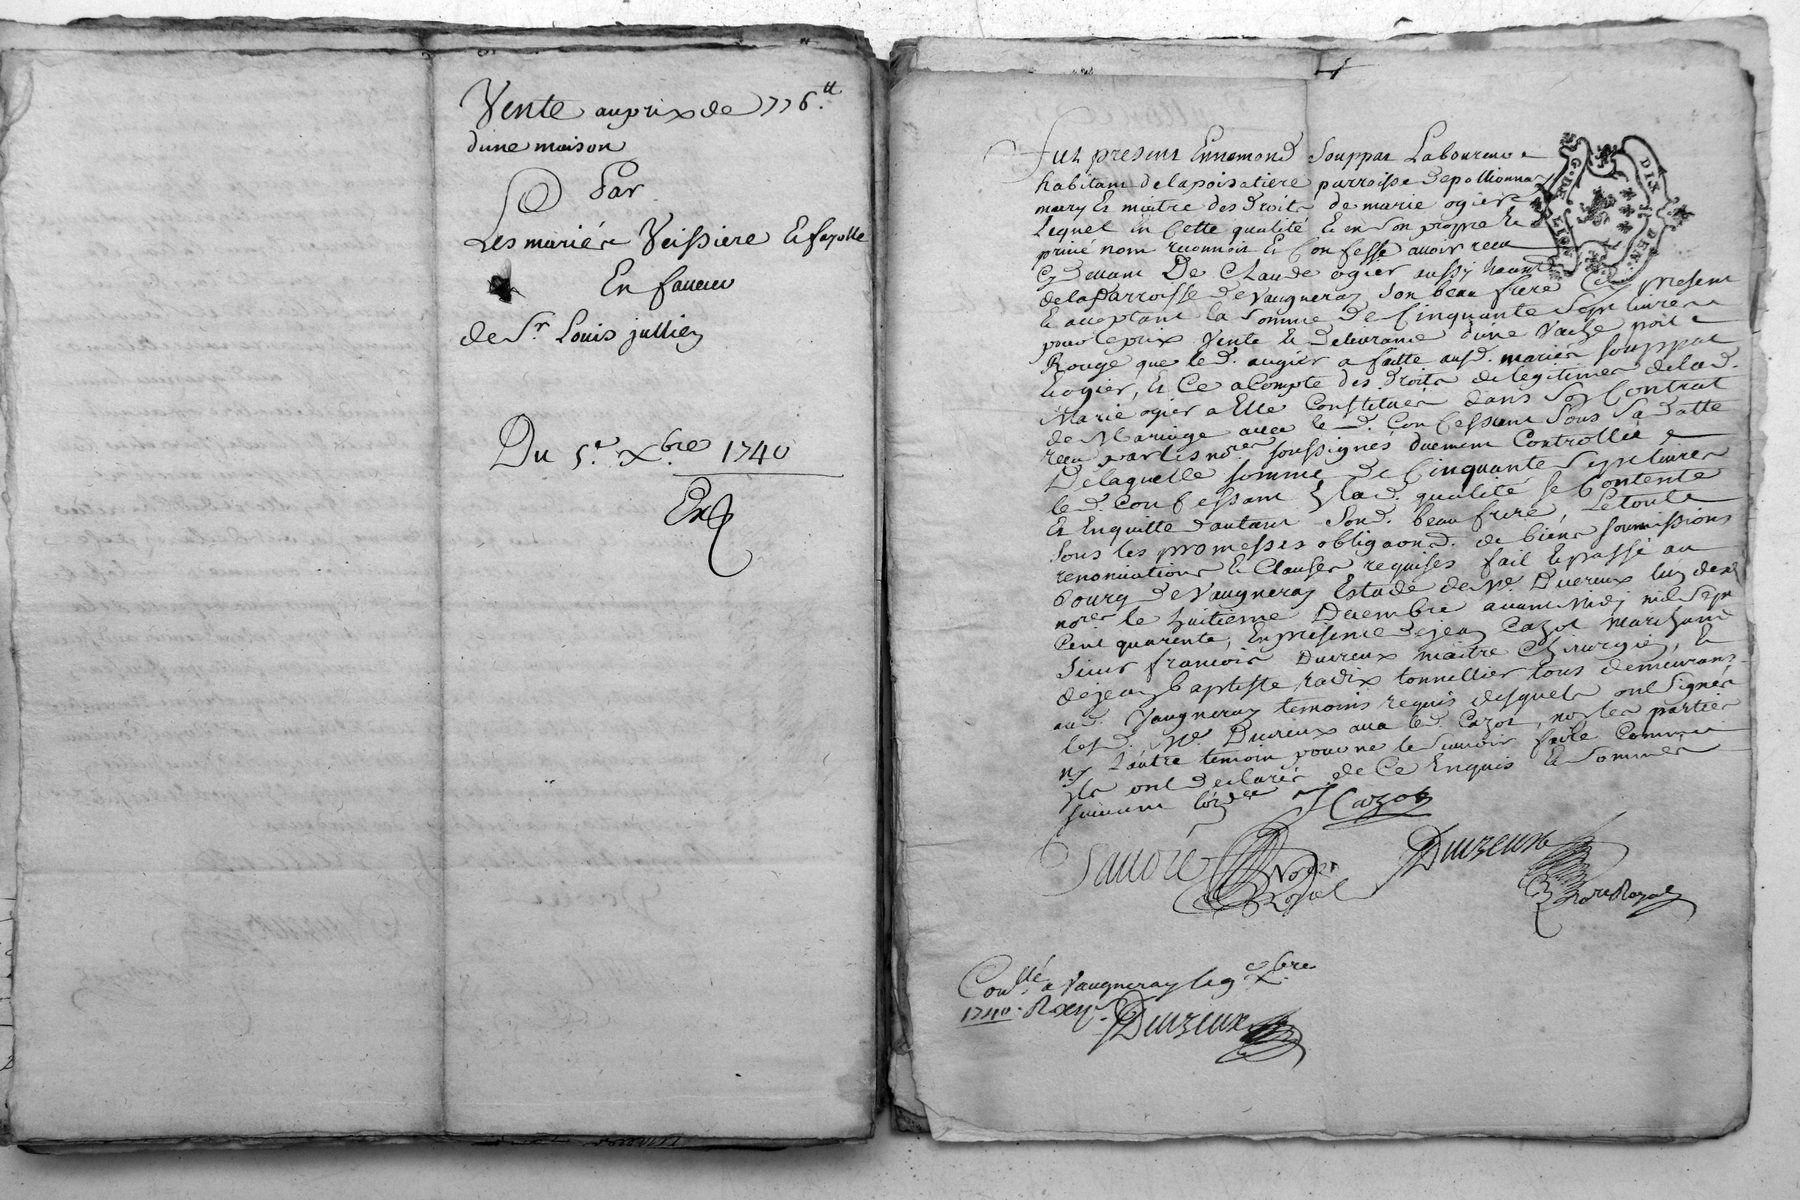 Vente au prix de 776.tt
d'une maison
Par
Les mariés Veissiere & fayolle
En faveur
de Sr. Louis jullien
Du 5.e Xbre 1740
Exp
G. DE LYON
DIX DEN.
Fut present Ennemond Souppat Laboureur
habitant de la poisatiere parroisse de pollionnay
mary & maitre des Droits de marie ogier
Lequel in Cette qualité & en son propre &
privé nom reconnoit & Confesse avoir receu
Cy devant De Claude ogier aussy habitt
de la Parroisse de Vaugneray son beau frere Cy present
& acceptant la somme de Cinquante Sept livres
pour le prix Vente & delivrance d'une Vache poil
Rouge que led. augier a faitte ausd. mariés souppat
& ogier, & Ce a Compte des Droits de legitimes de lad.
Marie ogier a Elle Constitues dans son Contrat
de Mariage avec led. Confessant sous sa datte
receu par les nores soussignés duement Controllé
De laquelle somme de Cinquante Sept livres
led. Confessant Esd. qualité se Contente
Et En quitte d'autant sond. beau frere, Le tout
sous les promesses obligaons. de biens soumissions
renonciations & Clauses requises fait & passé au
bourg de Vaugneray Estude de Me. Duvreux lun desd.
nores le huitieme Decembre avant Midy mil Sept
Cent quarente, En presence de jean Cazot marchand
Sieur francois Duvreux maitre Chirurgien, &
de jean baptiste radix tonnellier tous demeurans
aud. Vaugneray temoins requis desquels ont signés
lesd. Me. Duvreux avec led. Cazot, non les parties
ny l'autre temoin pour ne le scavoir faire Comme
ils ont declarés de Ce Enquis & sommés
suivant l'ordce
J Cazot
Savoré Nore Royal
Duvreux Nore Royal
Conllé a Vaugneray le 9e. Xbre
1740. Rx
Duvreux